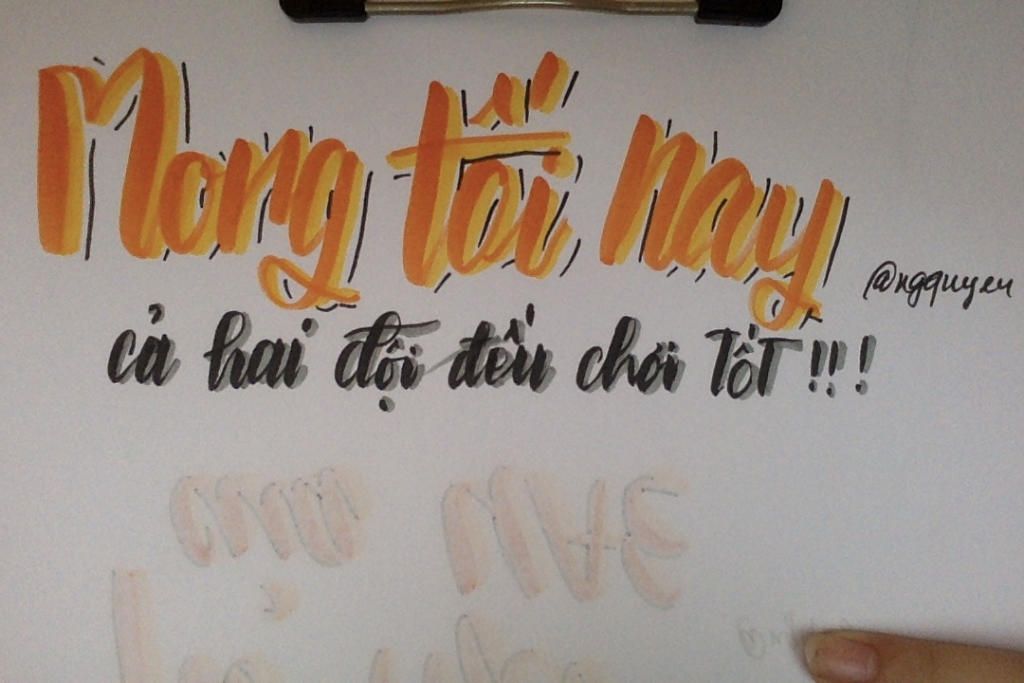 Mong tối nay
@ngquyen
cả hai đội đều chơi TỐT !!!